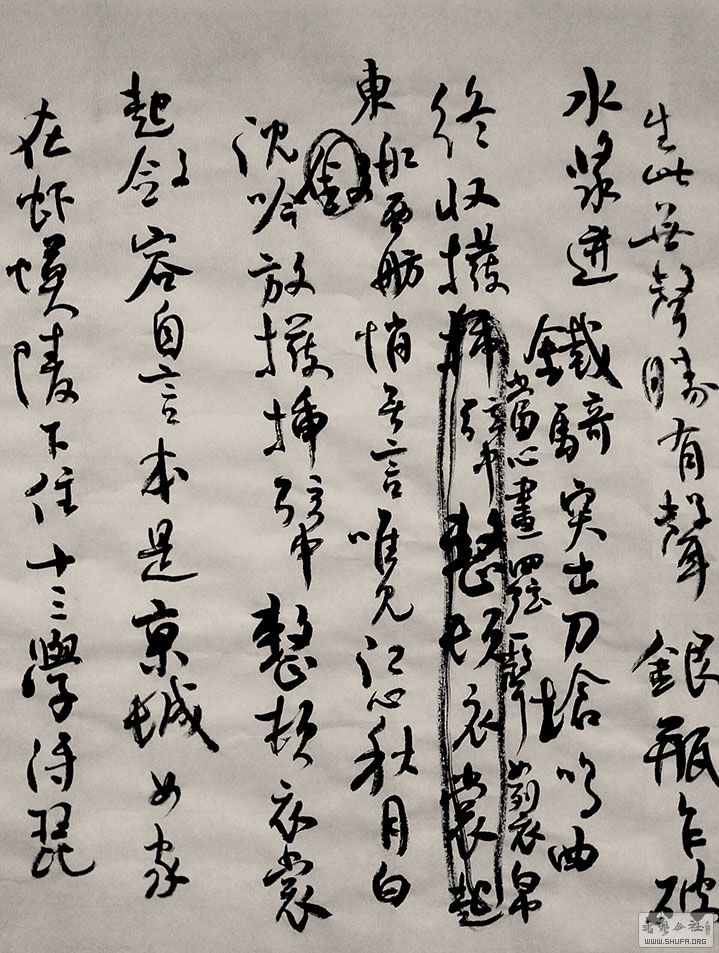 生此无聲勝有聲銀瓶乍破
水漿迸鐵騎突出刀鎗鳴曲
終收撥插弦中整頓衣裳起
當心畫四弦一聲如裂帛
東船西舫悄無言唯見江心秋月白
沈吟放撥插弦中整頓衣裳
起斂容自言本是京城女家
在虾蟆陵下住十三學得琵
書法公社
WWW.SHUFA.ORG